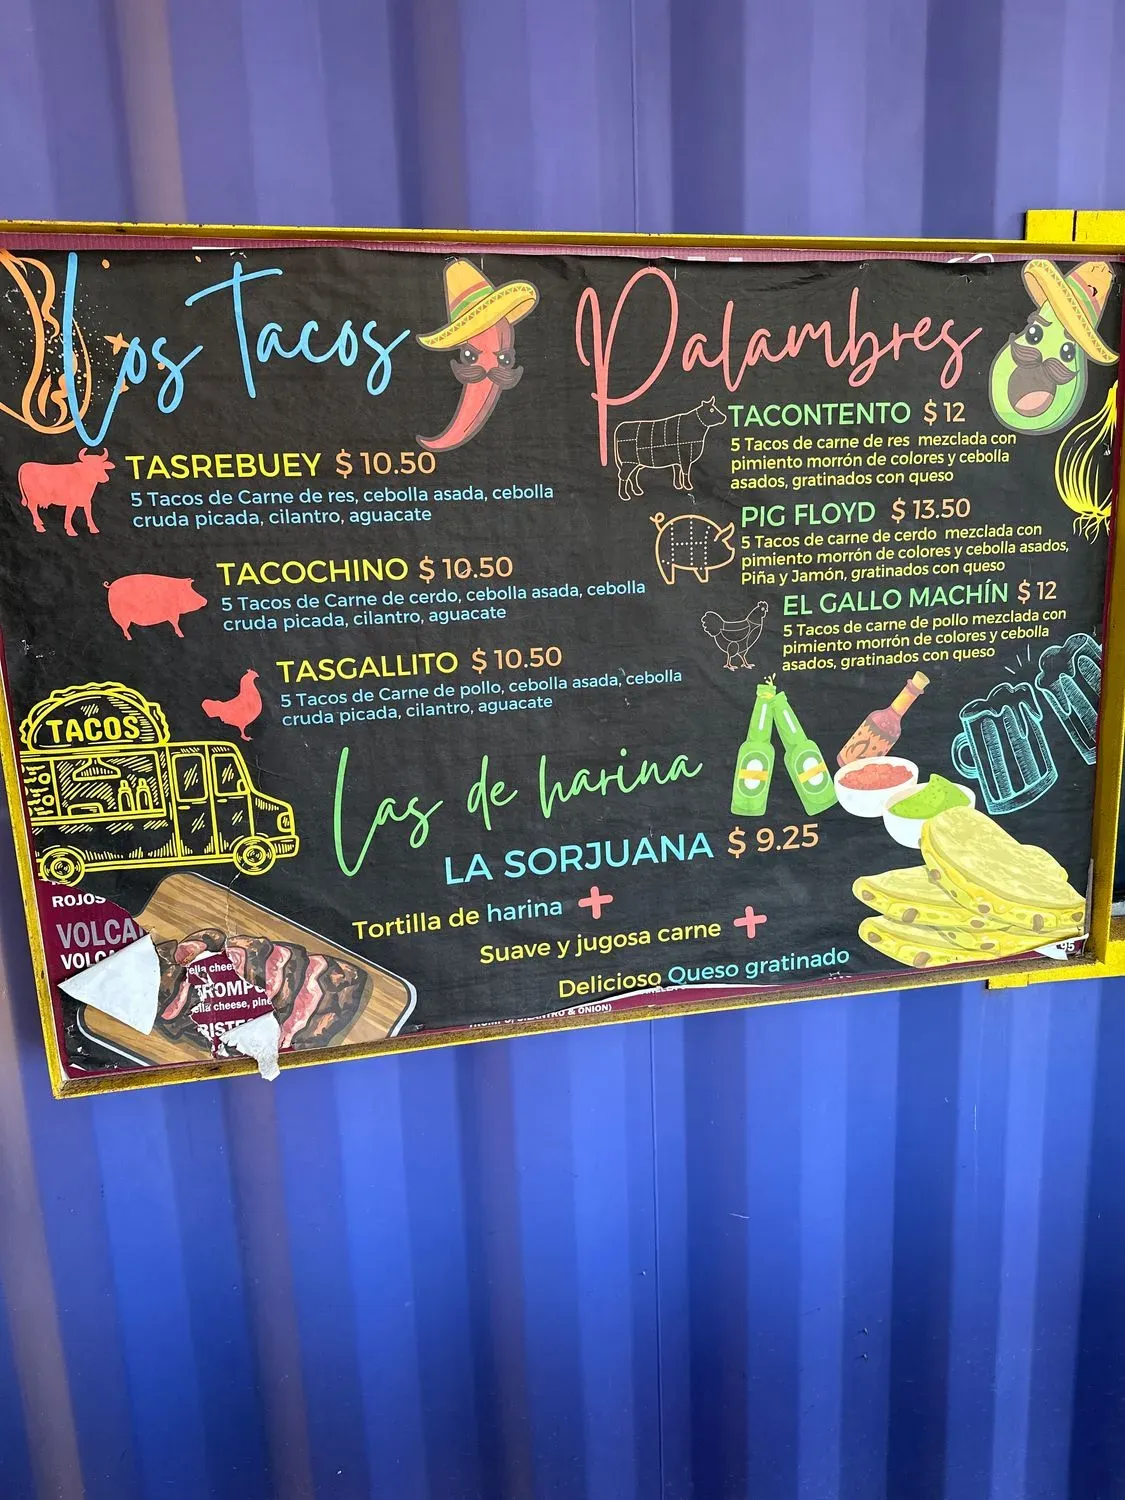 Los Tacos
TASREBUEY $ 10.50
5 Tacos de Carne de res, cebolla asada, cebolla
cruda picada, cilantro, aguacate
TACOCHINO $ 10.50
5 Tacos de Carne de cerdo, cebolla asada, cebolla
cruda picada, cilantro, aguacate
TASGALLITO $ 10.50
5 Tacos de Carne de pollo, cebolla asada, cebolla
cruda picada, cilantro, aguacate
Palambres
TACONTENTO $ 12
5 Tacos de carne de res mezclada con
pimiento morrón de colores y cebolla
asados, gratinados con queso
PIG FLOYD $ 13.50
5 Tacos de carne de cerdo mezclada con
pimiento morrón de colores y cebolla asados,
Piña y Jamón, gratinados con queso
EL GALLO MACHÍN $ 12
5 Tacos de carne de pollo mezclada con
pimiento morrón de colores y cebolla
asados, gratinados con queso
TACOS
Las de harina
LA SORJUANA $ 9.25
Tortilla de harina +
Suave y jugosa carne +
Delicioso Queso gratinado
ROJOS
cheese, pine
& ONION)
95